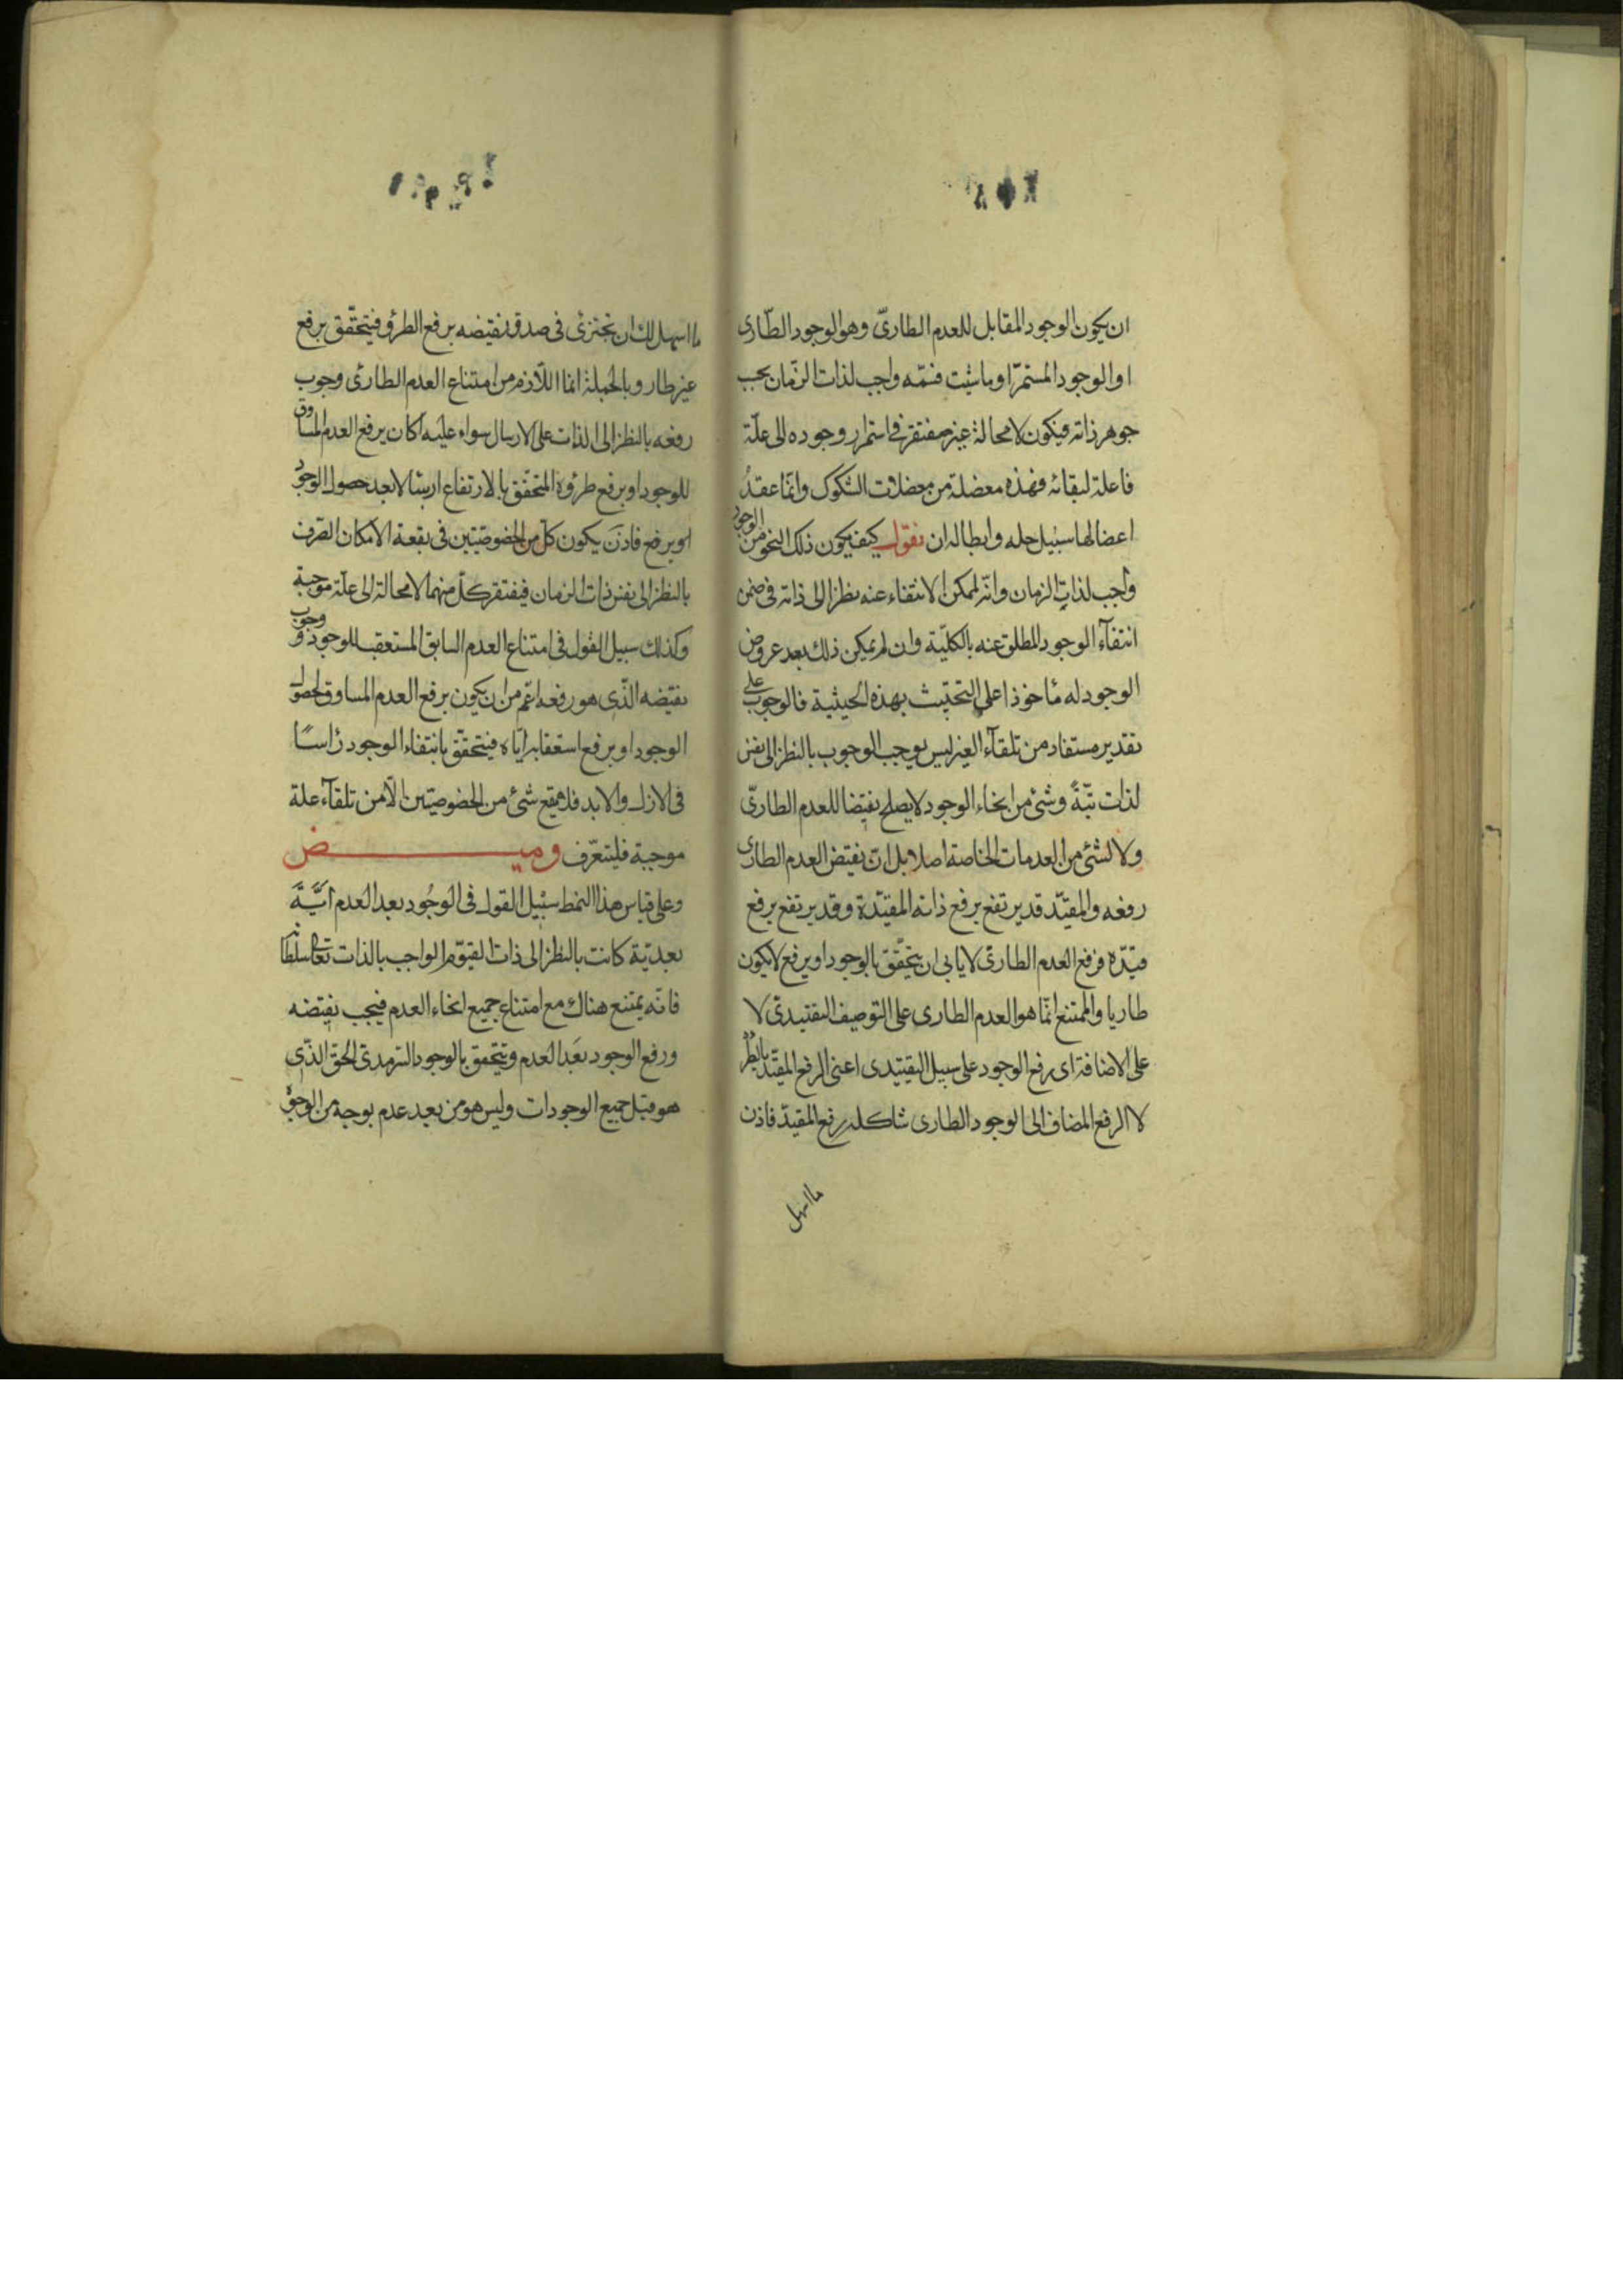 ان يكون الوجود المقابل للعدم الطارىّ وهو الوجود الطّارى
او الوجود المستمرّ او ما شئت فسمّه واجب لذات الزّمان بحسب
جوهر ذاته فيكون لا محالة غير مفتقر فى استمرار وجوده الى علّة
فاعلة لبقائه فهذه معضلة من معضلات الشكوك وانّما عقدُ
اعضالها سبيل حله وابطاله ان نقول كيف يكون ذلك النحو من الوجود
واجب لذات الزمان وانّه لممكن الانتفاء عنه نظرا الى ذاته فى ضمن
انتفآء الوجود المطلق عنه بالكليّة وان لم يمكن ذلك بعد عروض
الوجود له مأخوذا على التحيّث بهذه الحيثية فالوجوب على
تقدير مستفاد من تلقآء الغير ليس يوجب الوجوب بالنظر الى نفس
لذات بتّةً وشئ من انحاء الوجود لا يصلح نقيضا للعدم الطارىّ
ولا لشئ من العدمات الخاصة اصلا بل انّ نقيض العدم الطارى
رفعه والمقيّد قد يرتفع برفع ذاته المقيّدة وقد يرتفع برفع
قيّده فرفع العدم الطارىّ لا يابى ان يتحقّق بالوجود او يرفع لا يكون
طاريا والممتنع انّما هو العدم الطارى على التوصيف التقييدىّ لا
على الاضافة اى رفع الوجود على سبيل التقييدى اعنى الرفع المقيّد بالطرّ
لا الرفع المضاف الى الوجود الطارى شاكله رفع المقيّد فاذن
ما اسهل
ما اسهل لك ان تجتزئ فى صدق نقيضه برفع الطرؤ فيتحقّق برفع
غير طار وبالجملة انما اللّازم من امتناع العدم الطارى وجوب
رفعه بالنظر الى الذات على الارسال سواء عليه اكان يرفع العدم المساوق
للوجود او برفع طروّه المتحقّق بالارتفاع اربشا لا بعد حصول الوجود
او يرفع فاذن يكون كلّ من الخصوصيّتين فى بقعة الامكان الصّرف
بالنظر الى نفس ذات الزمان فيفتقر كلّ منهما لا محالة الى علّة موجبة
وكذلك سبيل القول فى امتناع العدم السابق المستعقب للوجود ووجوب
نقيضه الّذى هو رفعه اعّم من ان يكون برفع العدم المساوق لحصول
الوجود او برفع استعقابه ايّاه فيتحقّق بانتفاء الوجود رأسًا
فى الازل والابد فلا يقع شئ من الخصوصيّتين الّا من تلقآء علة
موجبة فليتعرّف وميض
وعلى قياس هذا النمط سبيل القول فى الوجُود بعد العدم ايَّـةَ
بعديّة كانت بالنظر الى ذات القيوّم الواجب بالذات تعالى سلطانه
فانّه يمتنع هناك مع امتناع جميع انحاء العدم فيجب نقيضه
ورفع الوجود بعَد العدم ويتحقق بالوجود السّرمدىّ الحقّ الذّى
هو قبل جميع الوجودات وليس هو من بعد عدم بوجه من الوجوه